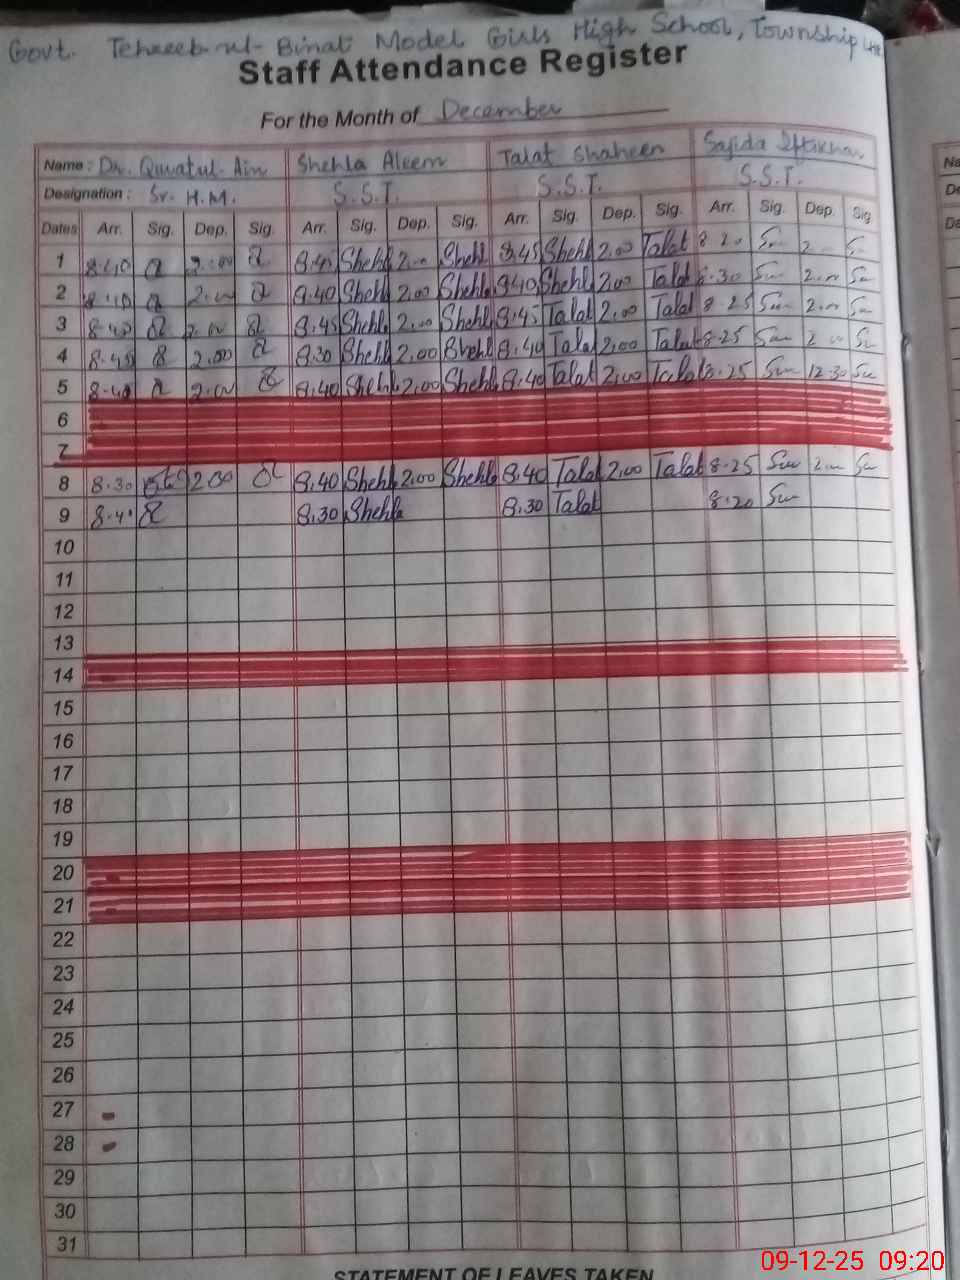 Govt. Tehzeeb-ul-Binat Model Girls High School, Township Lhr.
Staff Attendance Register
For the Month of December
Name : Dr. Qurratul-Ain Shehla Aleem Talat Shaheen Sajida Iftikhar
Designation : Sr. H.M. S.S.T. S.S.T. S.S.T.
Dates Arr. Sig. Dep. Sig. Arr. Sig. Dep. Sig. Arr. Sig. Dep. Sig. Arr. Sig. Dep. Sig
1 8.40 2.00 8.45 Shehl 2.00 Shehl 8.45 Shehl 2.00 Talat 8 20
2 8.40 2.00 8.40 Shehl 2.00 Shehl 8.40 Shehl 2.00 Talat 8.30 2.00
3 8.40 2.00 8.45 Shehl 2.00 Shehl 8.45 Talat 2.00 Talat 8 25 2.00
4 8.45 2.00 8.30 Shehl 2.00 Shehl 8.40 Talat 2.00 Talat 8.25 2 00
5 8.40 2.00 8.40 Shehl 2.00 Shehl 8.40 Talat 2.00 Talat 8.25 12.30
6
7
8 8.30 2.00 8.40 Shehl 2.00 Shehl 8.40 Talat 2.00 Talat 8.25 2.00
9 8.40 8.30 Shehla 8.30 Talat 8.20
10
11
12
13
14
15
16
17
18
19
20
21
22
23
24
25
26
27
28
29
30
31
STATEMENT OF LEAVES TAKEN
Na
De
Da
09-12-25 09:20